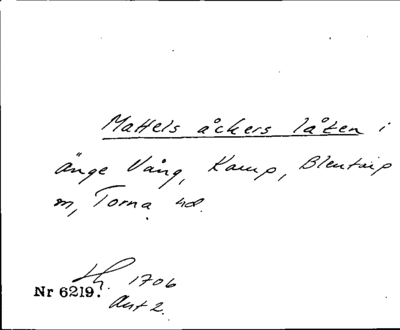 Mattels åckers låten i
änge Vång, Kamp, Blentarp
m, Torna hd.
Lh. 1706
Nr 6219.
Ant 2.